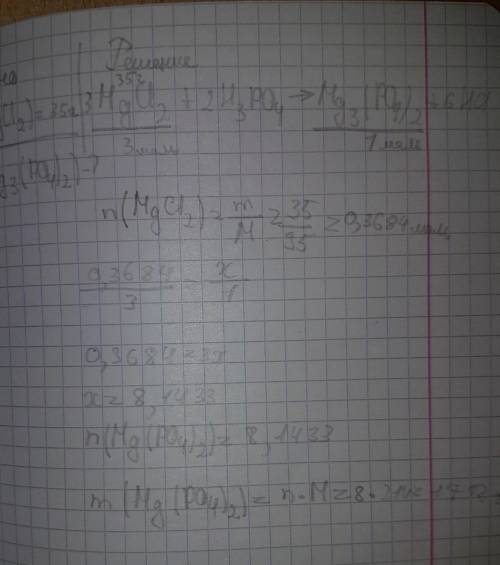 Решение
gCl2) = 35г | 3MgCl2 + 2H3PO4 → Mg3(PO4)2 + 6HCl
35г
3 моль 1 моль
g3(PO4)2) - ?
n(MgCl2) = m/M = 35/95 = 0,3684 моль
0,3684/3 = x/1
0,3684 = 3x
x = 8,1433
n(Mg(PO4)2) = 8,1433
m(Mg(PO4)2) = n · M = 8 ·